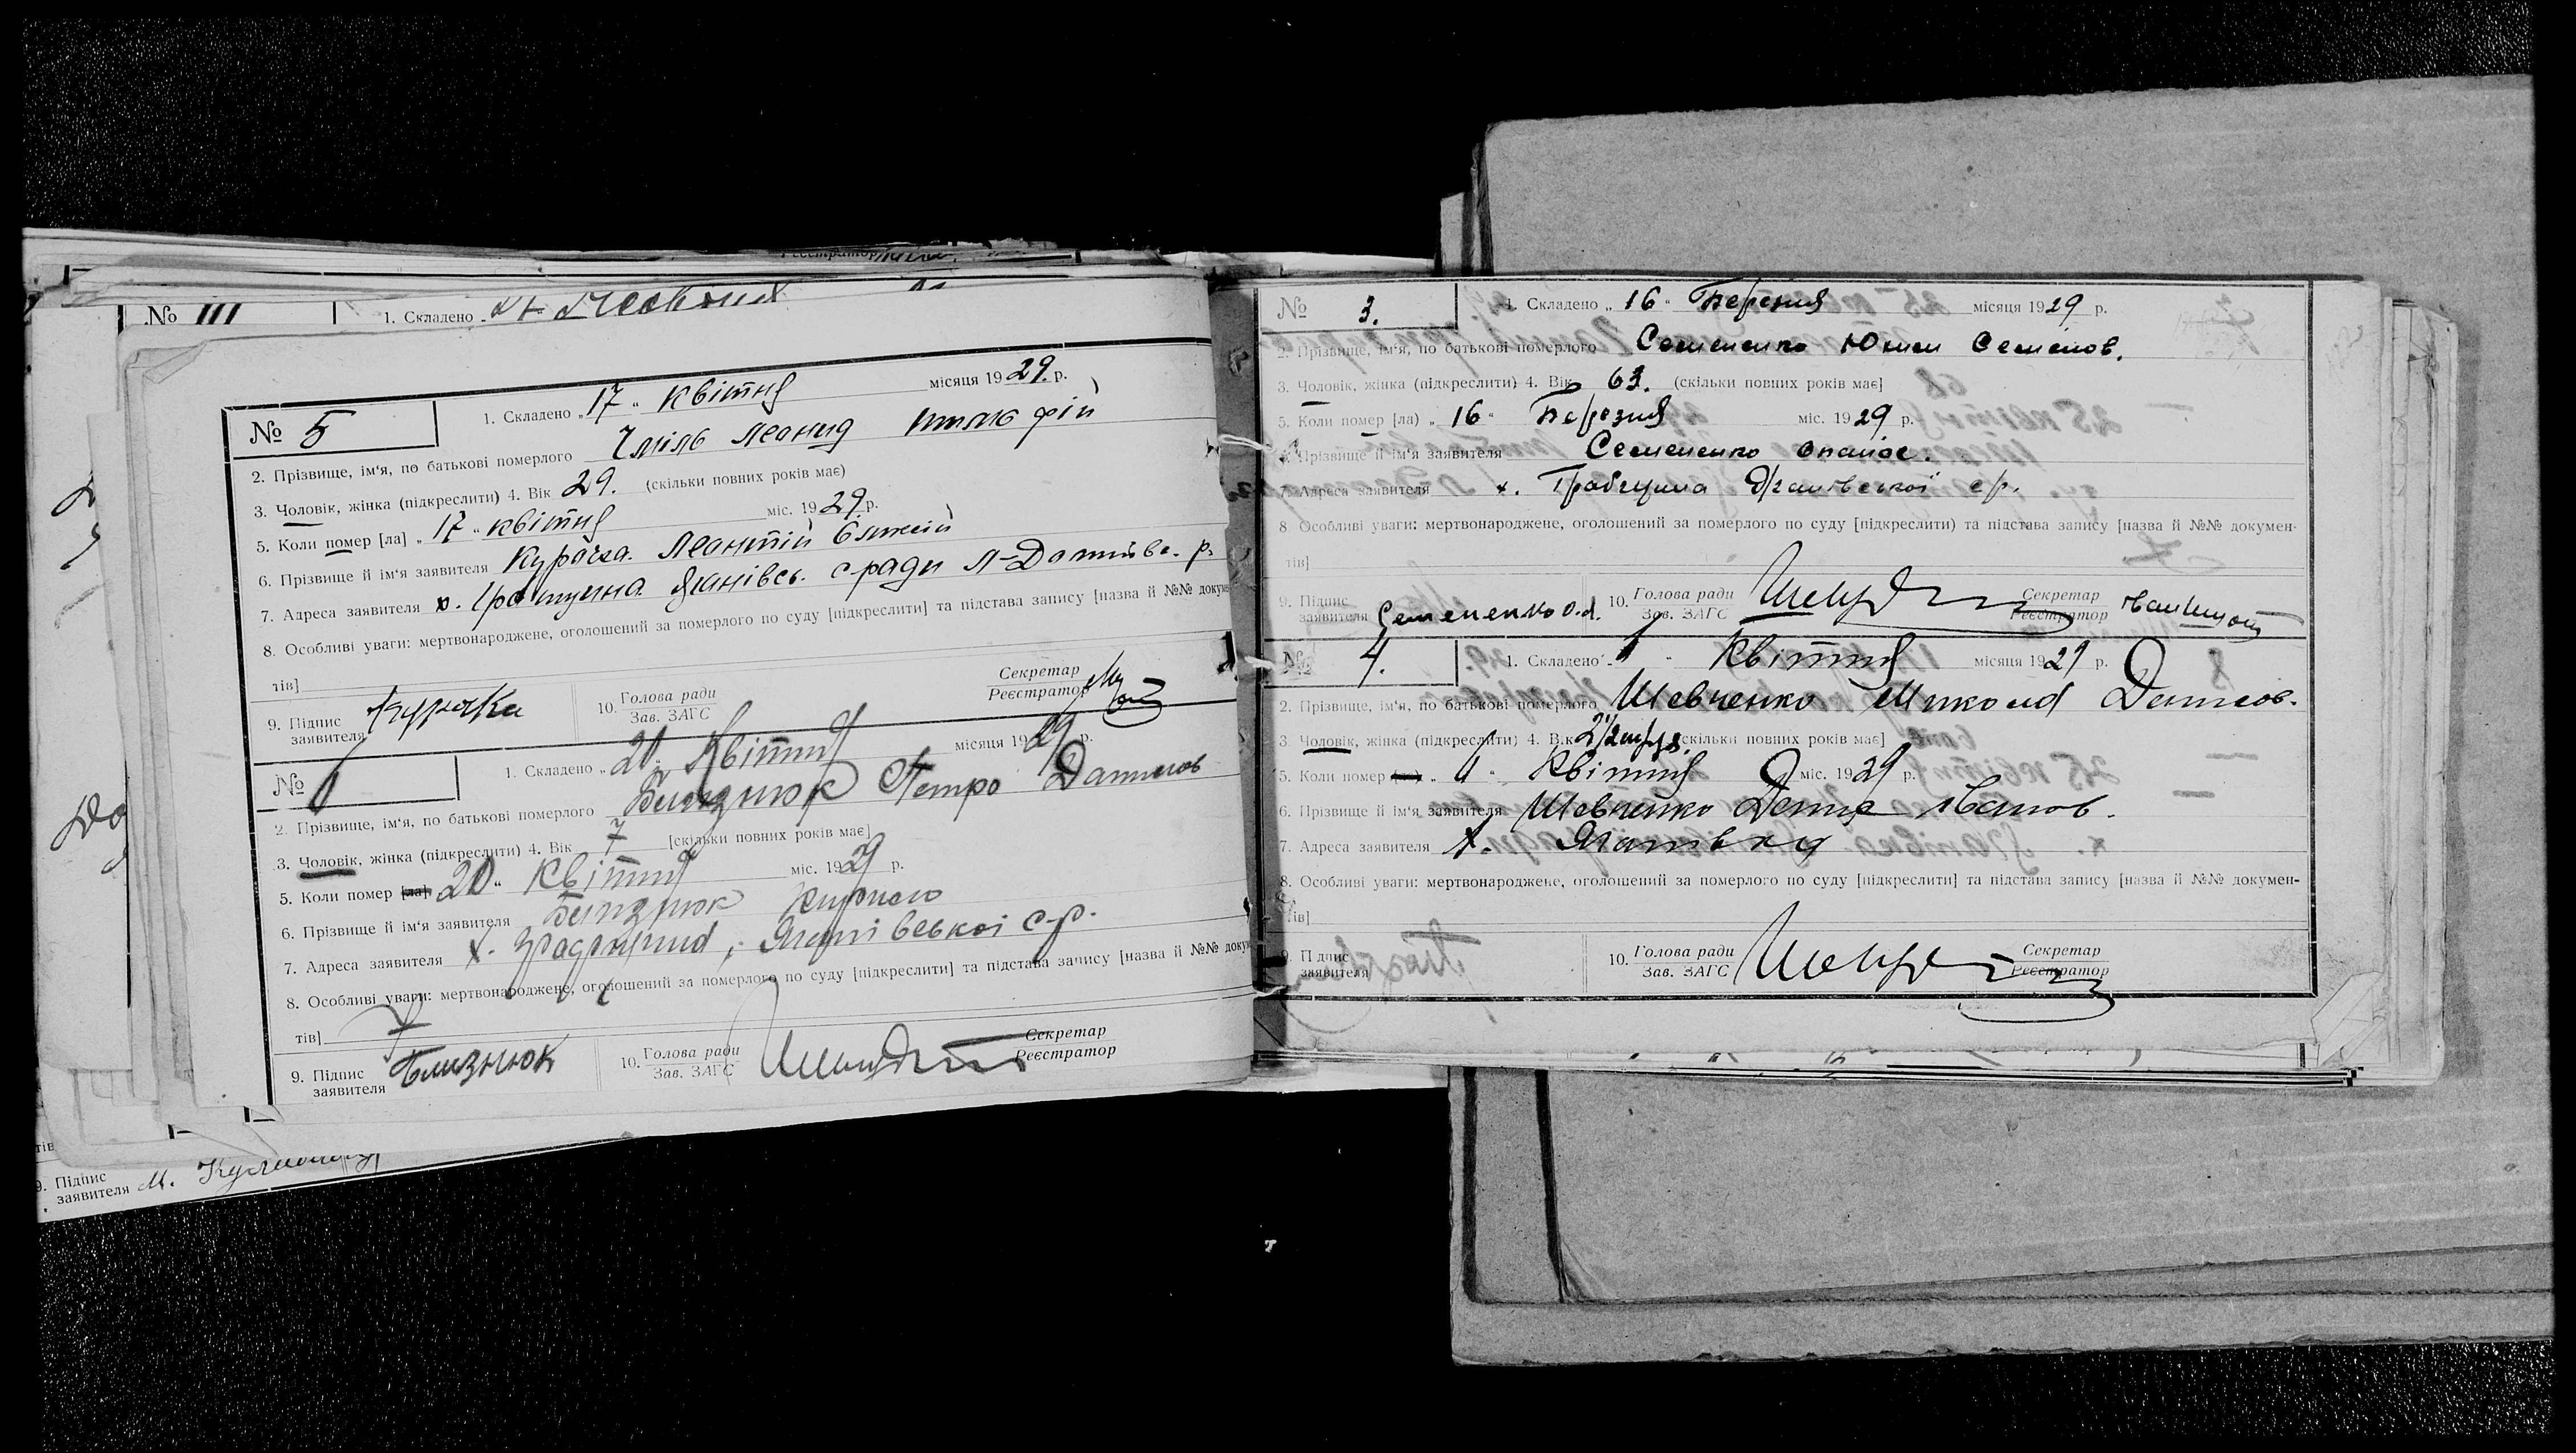 № III 1. Складено
№ 5 1. Складено „ 17 " квітня місяця 1929. р.
2. Прізвище, ім'я, по батькові померлого Чміль Леонид
3. Чоловік, жінка (підкреслити) 4. Вік 29. (скільки повних років має)
5. Коли помер [ла] „ 17 " квітня міс. 1929 р.
6. Прізвище й ім'я заявителя Курочка. Леонтій
7. Адреса заявителя х. Янівсь. с-ради
8. Особливі уваги: мертвонароджене, оголошений за померлого по суду [підкреслити] та підстава запису [назва й №№ докумен-
тів]
9. Підпис заявителя Курочка 10. Голова ради Зав. ЗАГС Секретар Реєстратор
№ 6 1. Складено „ 20 " Квітня місяця 1929 р.
2. Прізвище, ім'я, по батькові померлого Близнюк Петро Данилов
3. Чоловік, жінка (підкреслити) 4. Вік 7 [скільки повних років має]
5. Коли помер [ла] „ 20 " Квітня міс. 1929 р.
6. Прізвище й ім'я заявителя Близнюк Кирило
7. Адреса заявителя х. с-р.
8. Особливі уваги: мертвонароджене, оголошений за померлого по суду [підкреслити] та підстава запису [назва й №№ докумен-
тів]
9. Підпис заявителя Близнюк 10. Голова ради Зав. ЗАГС Секретар Реєстратор
9. Підпис заявителя М.
№ 3. 1. Складено „ 16 " Березня місяця 1929 р.
2. Прізвище, ім'я, по батькові померлого Семененко Юхим Семенов.
3. Чоловік, жінка (підкреслити) 4. Вік 63. (скільки повних років має]
5. Коли помер [ла) „ 16 " Березня міс. 1929 р.
6. Прізвище й ім'я заявителя Семененко Опанас.
7. Адреса заявителя х. Грабщина с/р.
8 Особливі уваги: мертвонароджене, оголошений за померлого по суду [підкреслити) та підстава запису [назва й №№ докумен-
тів]
9. Підпис заявителя Семененко О. 10. Голова ради Зав. ЗАГС Секретар Реєстратор
№ 4. 1. Складено „ 1 " Квітня місяця 1929 р.
2. Прізвище, ім'я, по батькові померлого Шевченко Микола Денисов.
3. Чоловік, жінка (підкреслити) 4. Вік 2 1/2 [скільки повних років має]
5. Коли помер „ 1 " Квітня міс. 1929 р.
6. Прізвище й ім'я заявителя Шевченко Денис Іванов.
7. Адреса заявителя х.
8. Особливі уваги: мертвонароджене, оголошений за померлого по суду [підкреслити] та підстава запису [назва й №№ докумен-
тів]
9. Підпис заявителя 10. Голова ради Зав. ЗАГС Секретар Реєстратор